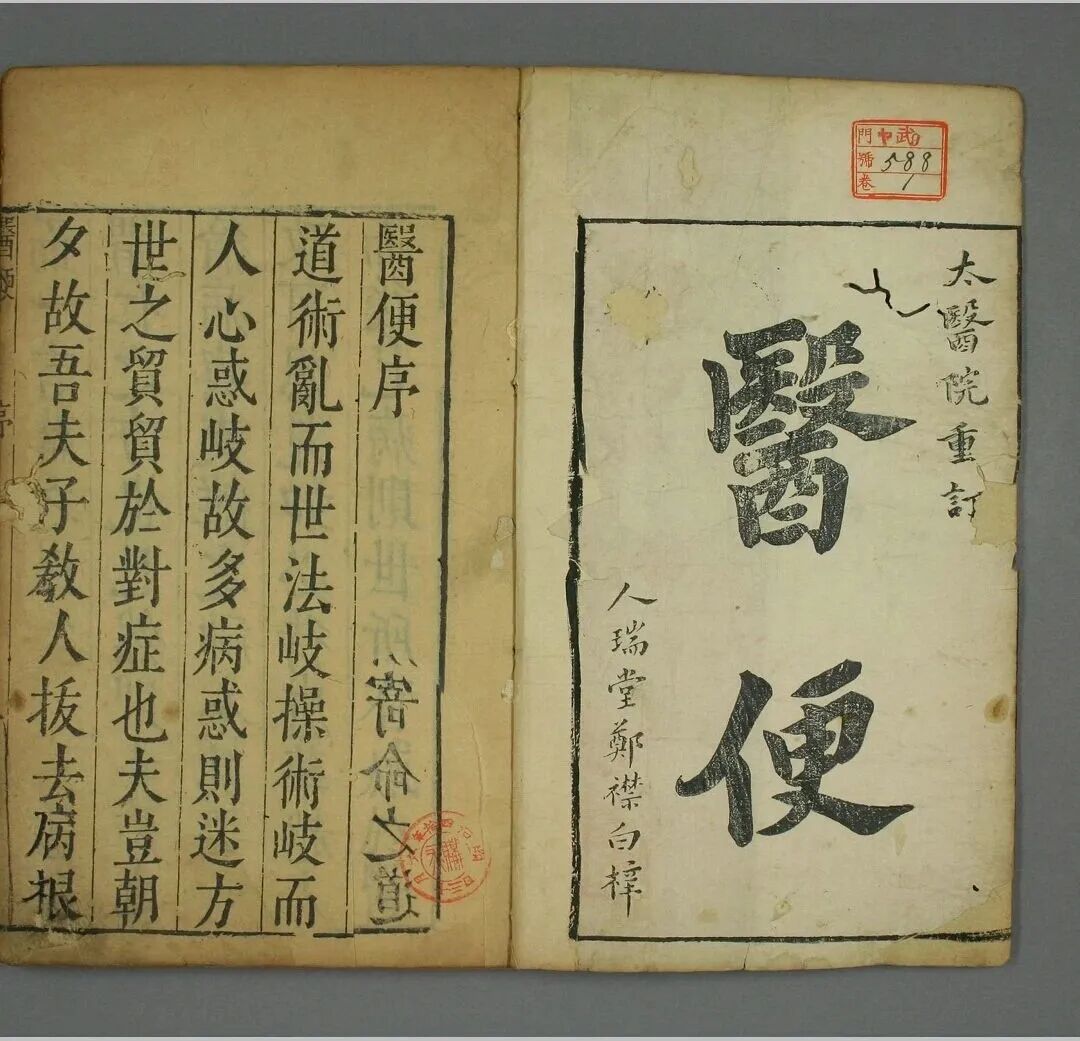 太醫院重訂
醫便
人瑞堂鄭襟白梓
門
號 588
卷 1
醫便序
道術亂而世法岐操術岐而
人心惑岐故多病惑則迷方
世之貿貿於對症也夫豈朝
夕故吾夫子教人拔去病根
醫便
序